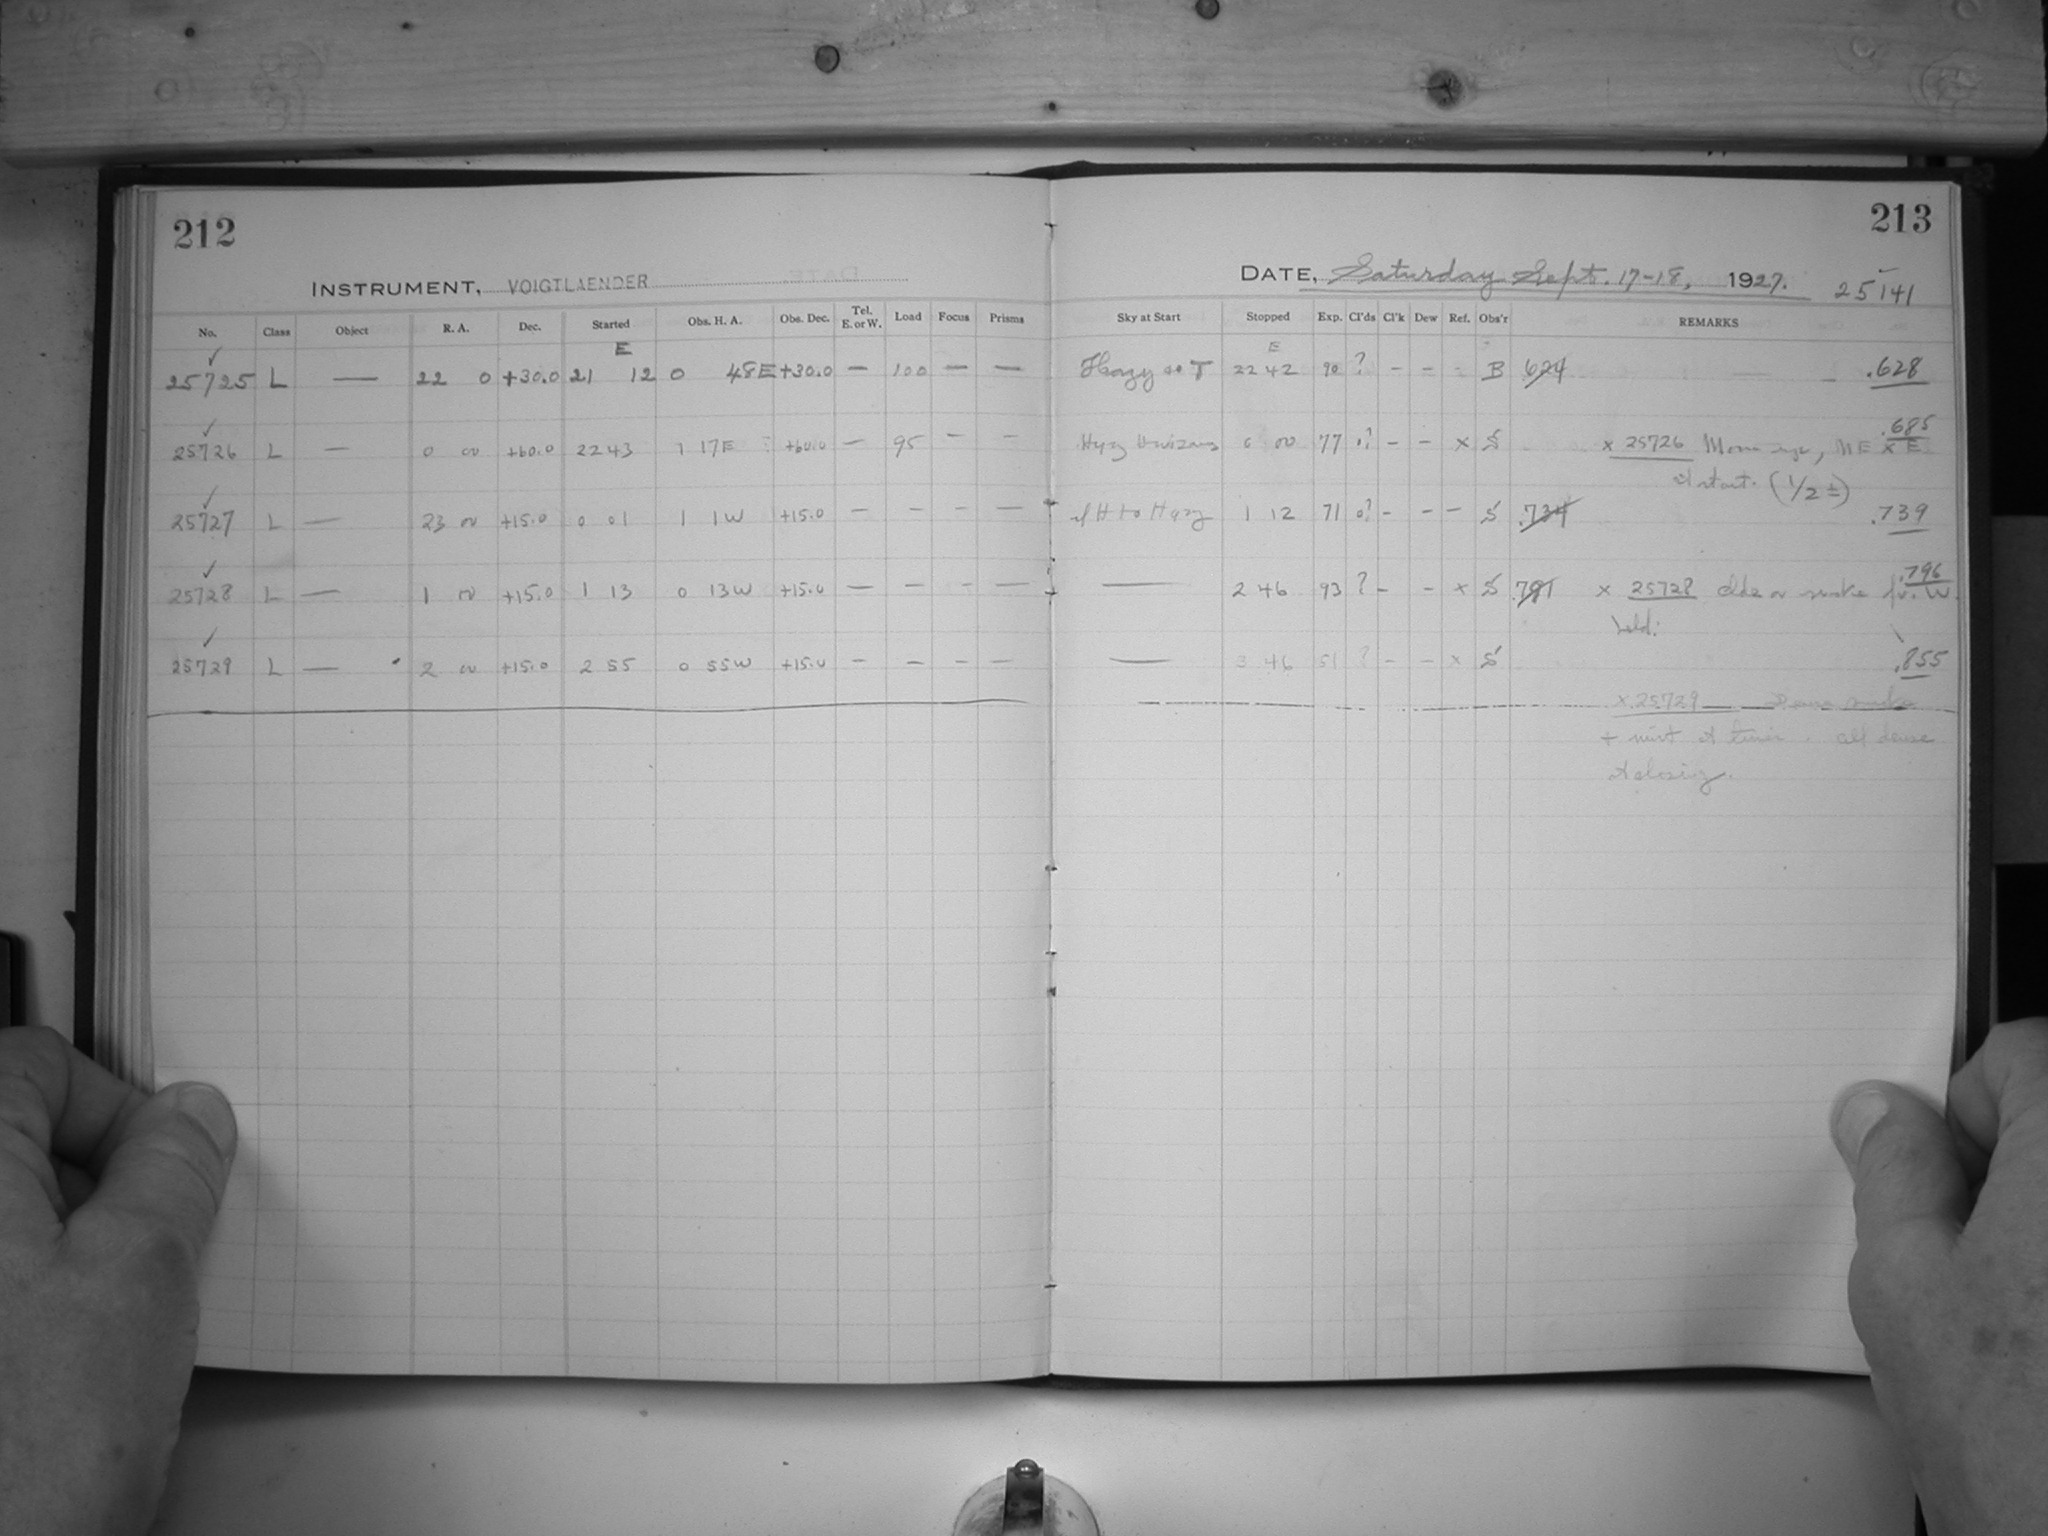 212
INSTRUMENT, VOIGTLAENDER
No. Class Object R. A. Dec. Started Obs. H. A. Obs. Dec. Tel. E. or W. Load Focus Prisms
E
25725 L — 22 0 +30.0 21 12 0 48E +30.0 — 100 — —
25726 L — 0 00 +60.0 22 43 1 17E +60.0 — 95 — —
25727 L — 23 00 +15.0 0 01 1 1W +15.0 — — — —
25728 L — 1 00 +15.0 1 13 0 13W +15.0 — — — —
25729 L — 2 00 +15.0 2 55 0 55W +15.0 — — — —
213
DATE, Saturday Sept. 17-18, 1927. 25141
Sky at Start Stopped Exp. Cl'ds Cl'k Dew Ref. Obs'r REMARKS
E
Hazy T 22 42 90 ? – – – B 624 .628
.685
Hyzy Horizons 0 00 77 0? – – x S x 25726 Moon, NE x E
at start. (1/2 ±)
H to Hazy 1 12 71 0? – – – S .734 .739
.796
— 2 46 93 ? – – x S .791 x 25728 clds or smoke W.
held.
— 3 46 51 ? – – x S .855
x 25729 smoke
+ mist at times. all dense
at closing.